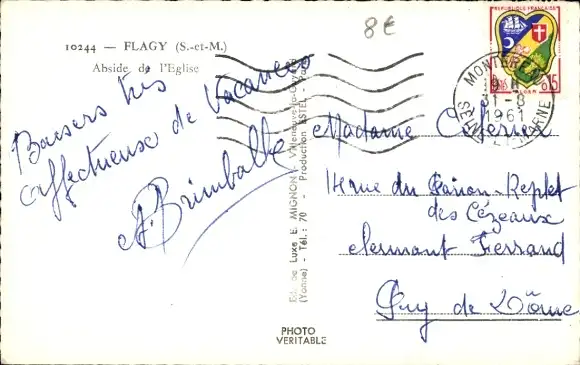 8€
10244 — FLAGY (S.-et-M.)
Abside de l'Eglise
Baisers très
affectueux de Vacances
A. Brimbalte
Ed. de Luxe E. MIGNON, Villeneuve-la-Guyard
(Yonne) - Tél. : 70 - Production ESTEL - Paris
REPUBLIQUE FRANÇAISE
ALGER
0,15
MONTEREAU
19 H
31-8
1961
SEINE ET MARNE
Madame
14 rue du
des Cézeaux
Clermont Ferrand
Puy de Dôme
PHOTO
VERITABLE